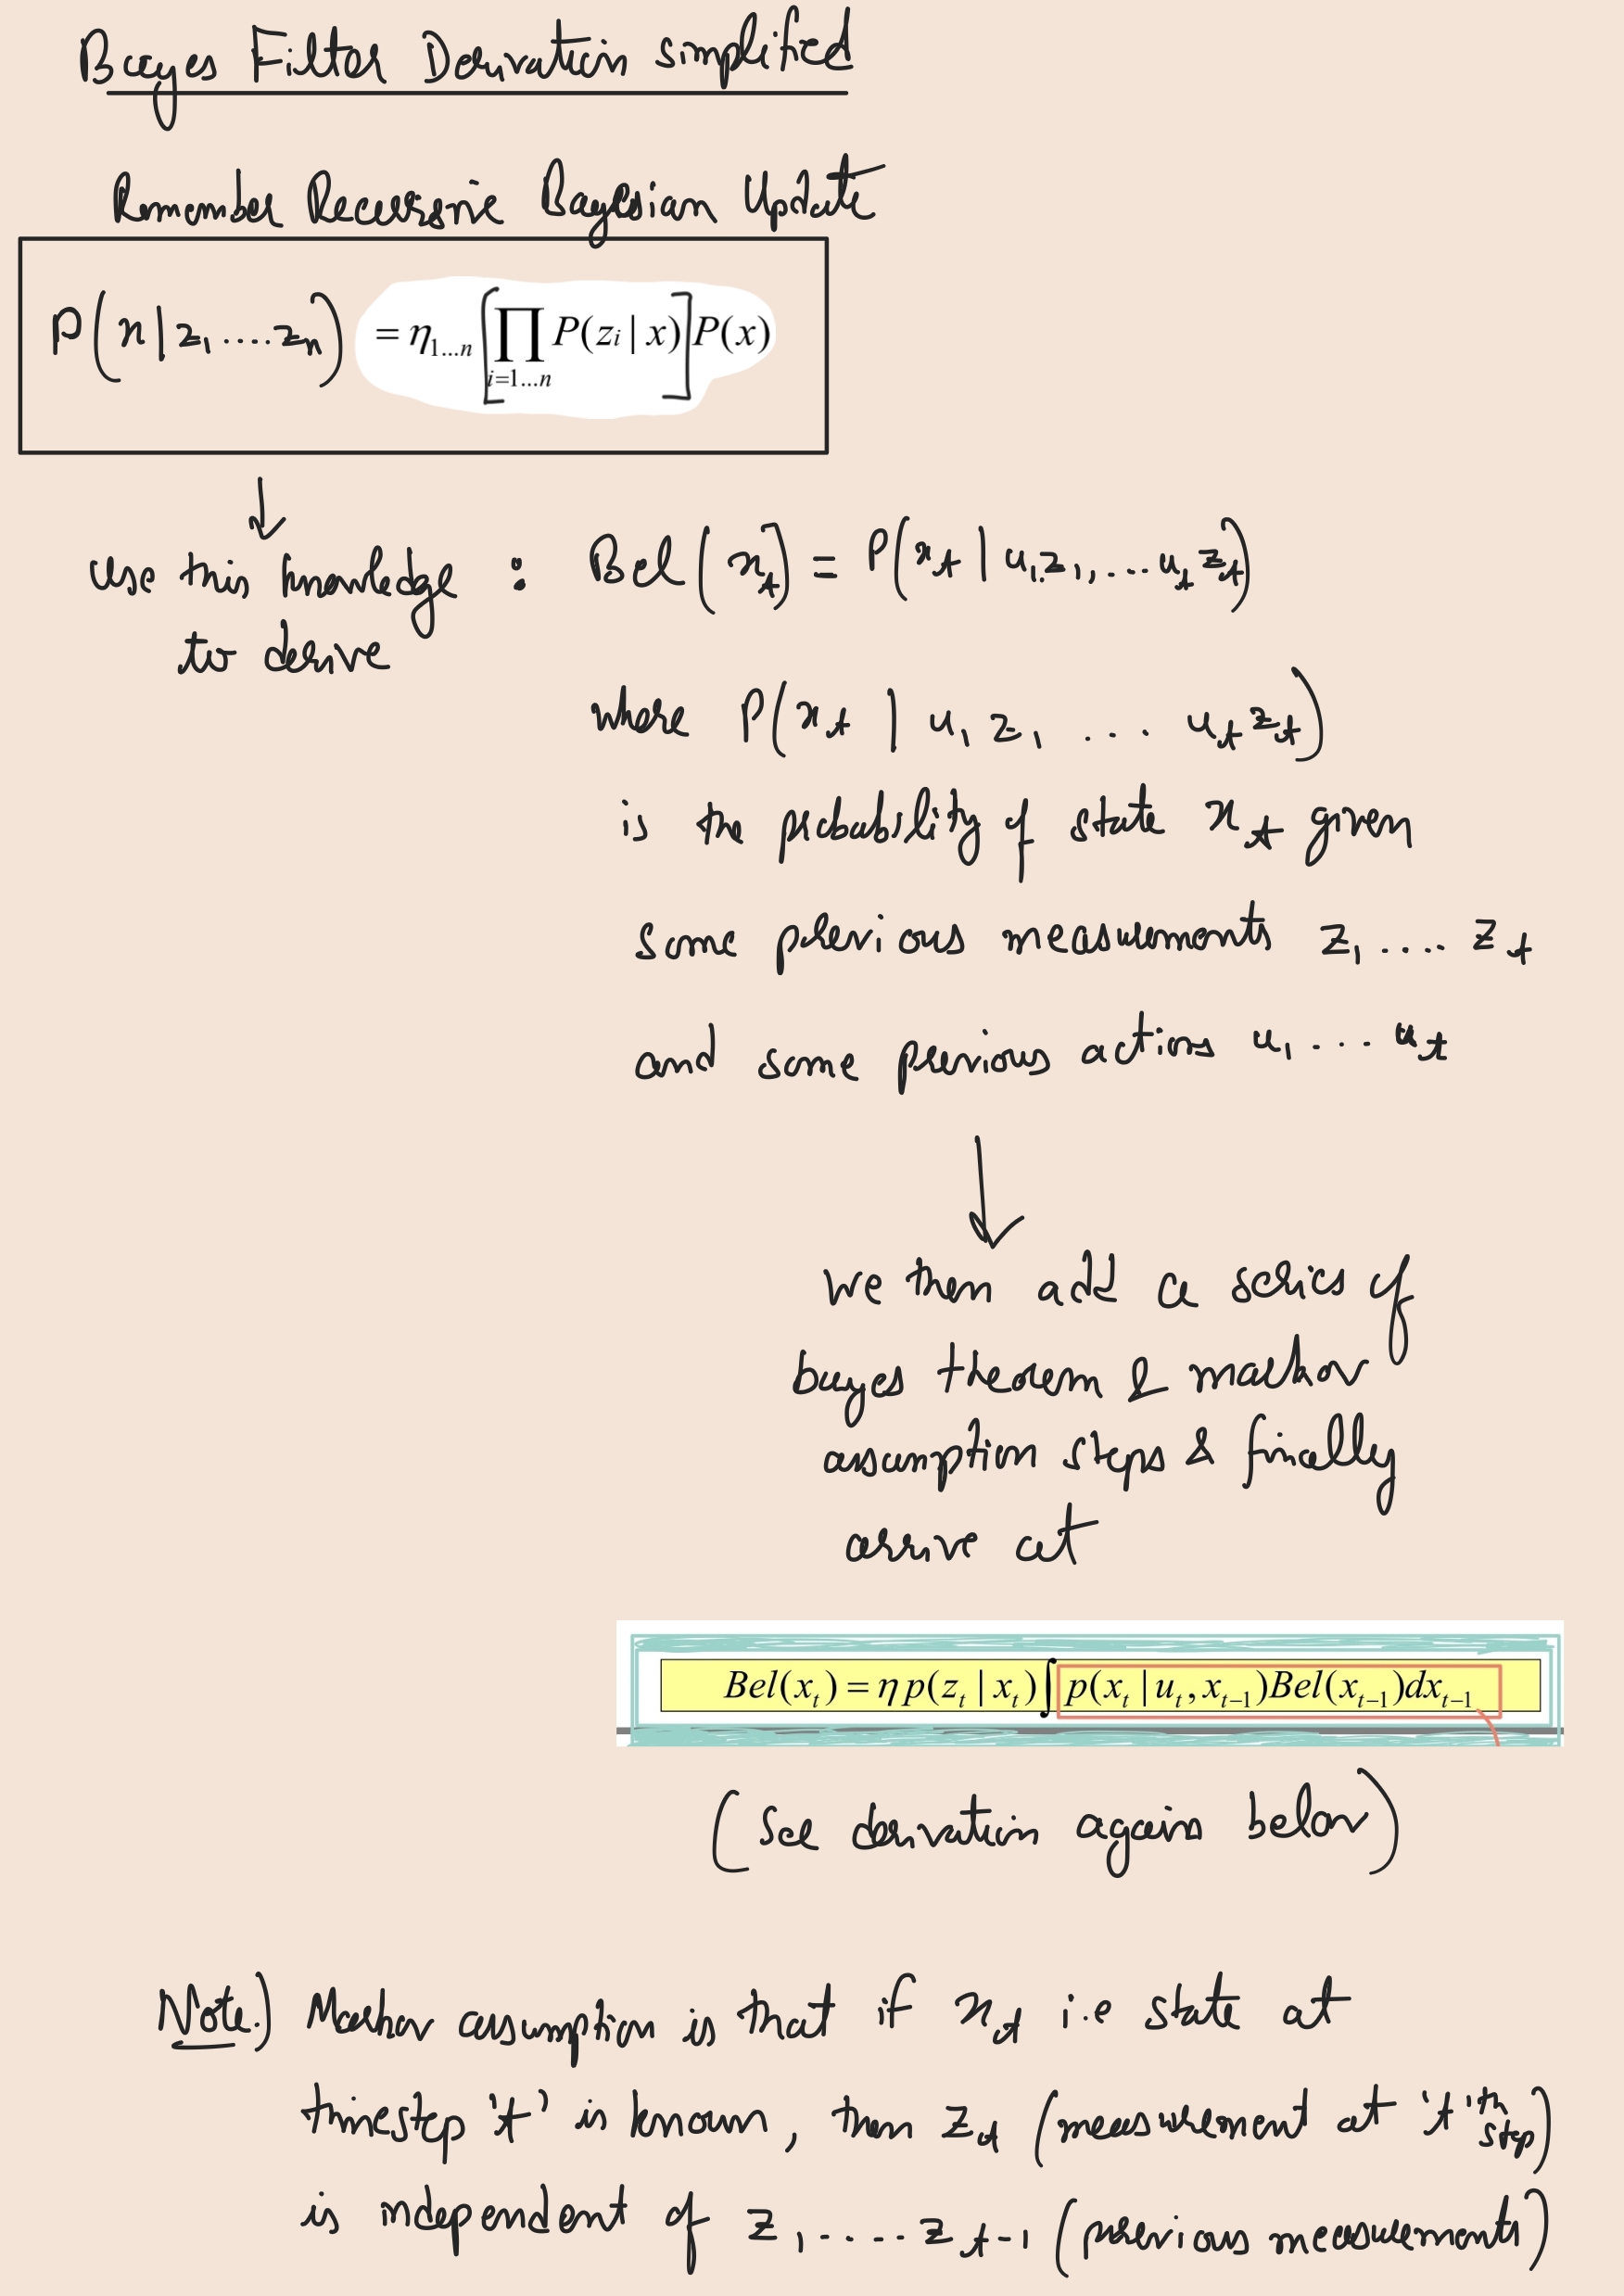 Bayes Filter Derivation simplified
Remember Recursive Bayesian Update
P(x | z₁ .... zₙ) = η₁...ₙ [∏ᵢ₌₁...ₙ P(zᵢ | x)] P(x)
↓
Use this knowledge : Bel(xₜ) = P(xₜ | u₁ z₁, ... uₜ zₜ)
to derive
where P(xₜ | u₁ z₁ .... uₜ zₜ)
is the probability of state xₜ given
some previous measurements z₁ .... zₜ
and some previous actions u₁ ... uₜ
↓
we then add a series of
bayes theorem & markov
assumption steps & finally
arrive at
Bel(xₜ) = η p(zₜ | xₜ) ∫ p(xₜ | uₜ, xₜ₋₁) Bel(xₜ₋₁) dxₜ₋₁
(See derivation again below)
Note.) Markov assumption is that if xₜ i.e state at
timestep 't' is known, then zₜ (measurement at 't'th step)
is independent of z₁ ..... zₜ₋₁ (previous measurements)